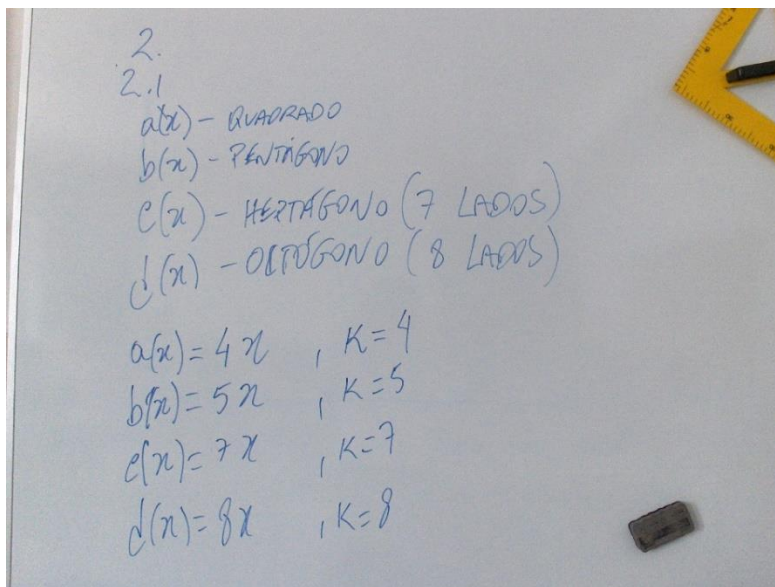 2.
2.1
a(x) – QUADRADO
b(x) – PENTÁGONO
c(x) – HEPTÁGONO (7 LADOS)
d(x) – OCTÓGONO (8 LADOS)
a(x) = 4x , K=4
b(x) = 5x , K=5
c(x) = 7x , K=7
d(x) = 8x , K=8